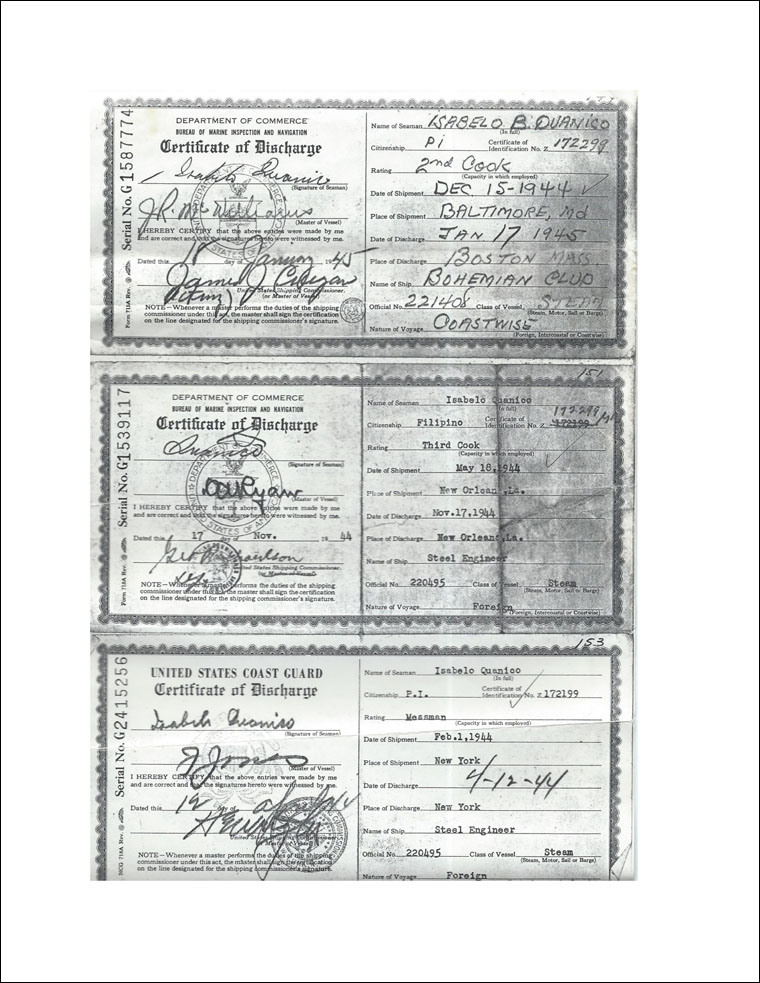 DEPARTMENT OF COMMERCE
BUREAU OF MARINE INSPECTION AND NAVIGATION
Certificate of Discharge
(Signature of Seaman)
J.R. McWilliams
(Master of Vessel)
I HEREBY CERTIFY that the above entries were made by me
and are correct and that the signatures hereto were witnessed by me.
Dated this day of January 1945
James J
United States Shipping Commissioner.
(or Master of Vessel)
NOTE—Whenever a master performs the duties of the shipping
commissioner under this act, the master shall sign the certification
on the line designated for the shipping commissioner's signature.
Serial No. G1587774
Form 718A Rev.
Name of Seaman ISABELO B. QUANICO
(In full)
Citizenship Pi Certificate of
Identification No. Z 172299
Rating 2nd Cook
(Capacity in which employed)
Date of Shipment DEC 15-1944
Place of Shipment BALTIMORE, Md
Date of Discharge JAN 17 1945
Place of Discharge BOSTON MASS
Name of Ship BOHEMIAN CLUB
Official No. 221408 Class of Vessel STEM
(Steam, Motor, Sail or Barge)
Nature of Voyage COASTWISE
(Foreign, Intercoastal or Coastwise)
151
DEPARTMENT OF COMMERCE
BUREAU OF MARINE INSPECTION AND NAVIGATION
Certificate of Discharge
Quanico
(Signature of Seaman)
Ryan
(Master of Vessel)
I HEREBY CERTIFY that the above entries were made by me
and are correct and that the signatures hereto were witnessed by me.
Dated this 17 day of Nov. 1944
United States Shipping Commissioner.
(or Master of Vessel)
NOTE—Whenever a master performs the duties of the shipping
commissioner under this act, the master shall sign the certification
on the line designated for the shipping commissioner's signature.
Serial No. G1539117
Form 718A Rev.
Name of Seaman Isabelo Quanico
(In full)
172299
Citizenship Filipino Certificate of
Identification No. Z 172199
Rating Third Cook
(Capacity in which employed)
Date of Shipment May 18,1944
Place of Shipment New Orlean ,La.
Date of Discharge Nov.17,1944
Place of Discharge New Orleans,La.
Name of Ship Steel Engineer
Official No. 220495 Class of Vessel Steam
(Steam, Motor, Sail or Barge)
Nature of Voyage Foreign
(Foreign, Intercoastal or Coastwise)
153
UNITED STATES COAST GUARD
Certificate of Discharge
(Signature of Seaman)
J Jones
(Master of Vessel)
I HEREBY CERTIFY that the above entries were made by me
and are correct and that the signatures hereto were witnessed by me.
Dated this 12 day of April
United States Shipping Commissioner.
(or Master of Vessel)
NOTE—Whenever a master performs the duties of the shipping
commissioner under this act, the master shall sign the certification
on the line designated for the shipping commissioner's signature.
Serial No. G2415256
NCG 718A Rev.
Name of Seaman Isabelo Quanico
(In full)
Citizenship P.I. Certificate of
Identification No. Z 172199
Rating Messman
(Capacity in which employed)
Date of Shipment Feb.1,1944
Place of Shipment New York
Date of Discharge 4-12-44
Place of Discharge New York
Name of Ship Steel Engineer
Official No. 220495 Class of Vessel Steam
(Steam, Motor, Sail or Barge)
Nature of Voyage Foreign